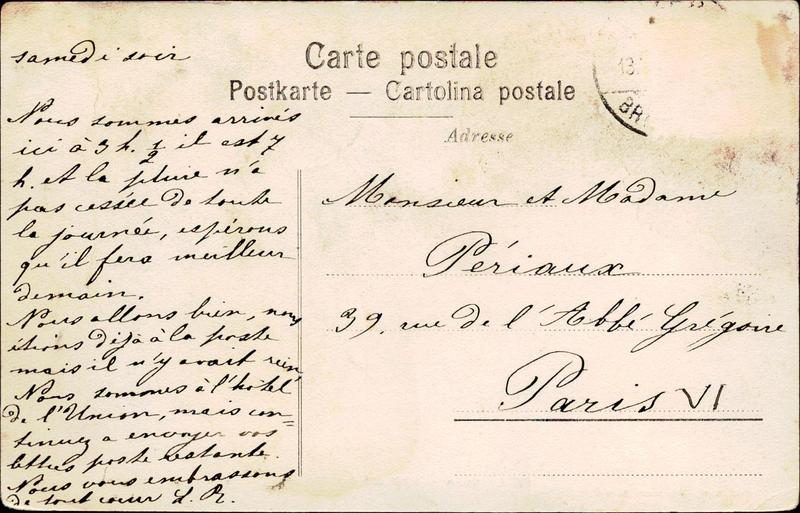 Carte postale
Postkarte — Cartolina postale
Adresse
13
BR
samedi soir
Nous sommes arrivés
ici à 3 h. 1/2 il est 7
h. et la pluie n'a
pas cessée de toute
la journée, espérons
qu'il fera meilleur
demain.
Nous allons bien, nous
étions déjà à la poste
mais il n'y avait rien,
Nous sommes à l'hotel
de l'Union, mais con=
tinuez a envoyer vos
lettres poste restante.
Nous vous embrassons
de tout cœur L. R.
Monsieur et Madame
Périaux
39, rue de l'Abbé Grégoire
Paris VI